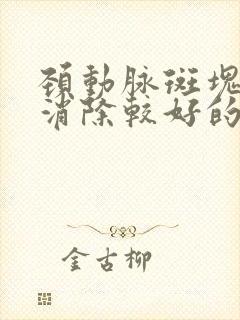 頸動脉斑塊
消除較好的
金古柳